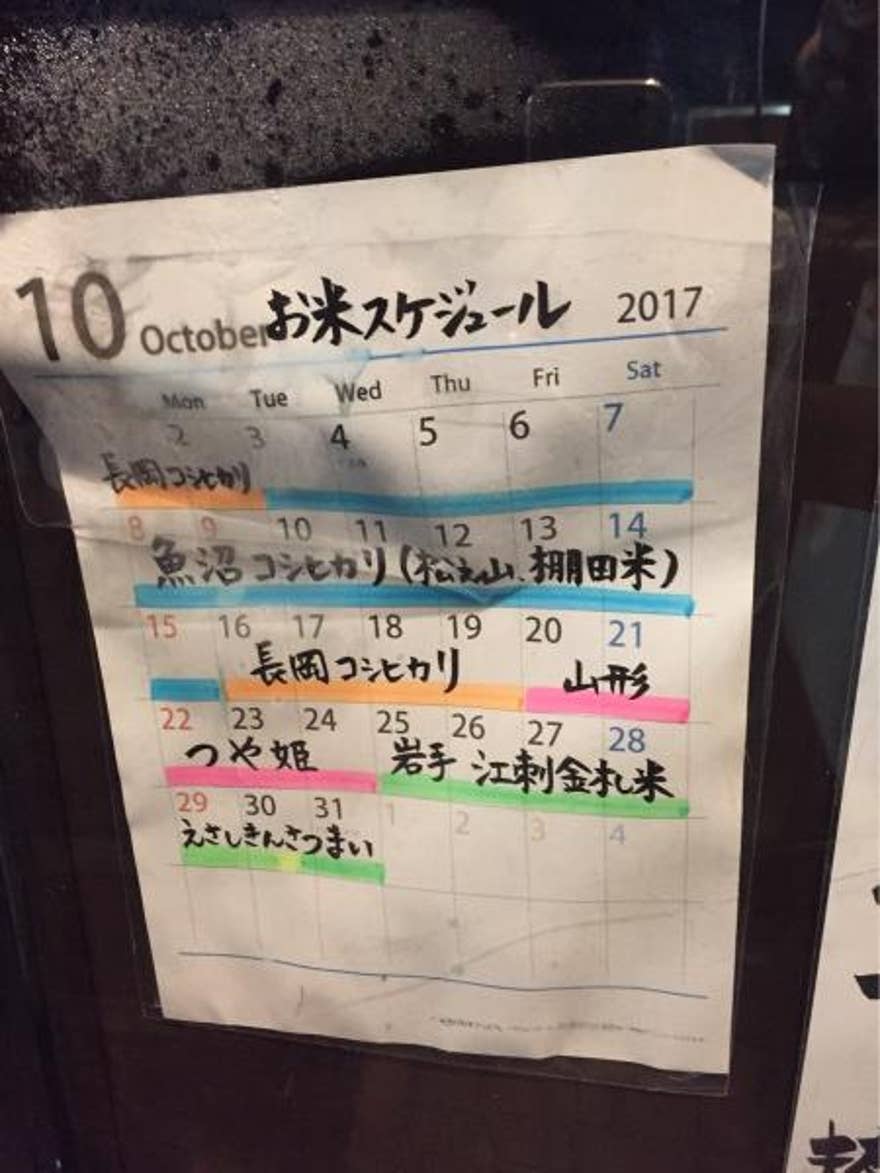 10 October お米スケジュール 2017
Mon Tue Wed Thu Fri Sat
2 3 4 5 6 7
長岡コシヒカリ
8 9 10 11 12 13 14
魚沼コシヒカリ(松之山、棚田米)
15 16 17 18 19 20 21
長岡コシヒカリ 山形
22 23 24 25 26 27 28
つや姫 岩手 江刺金札米
29 30 31 1 2 3 4
えさしきんさつまい